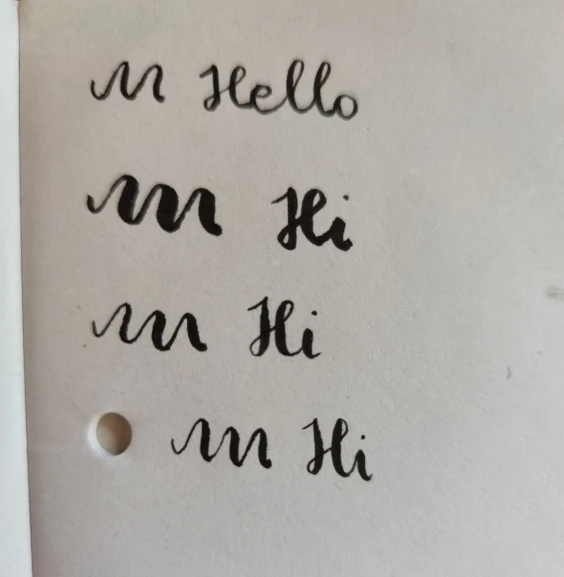 m Hello
m Hi
m Hi
m Hi